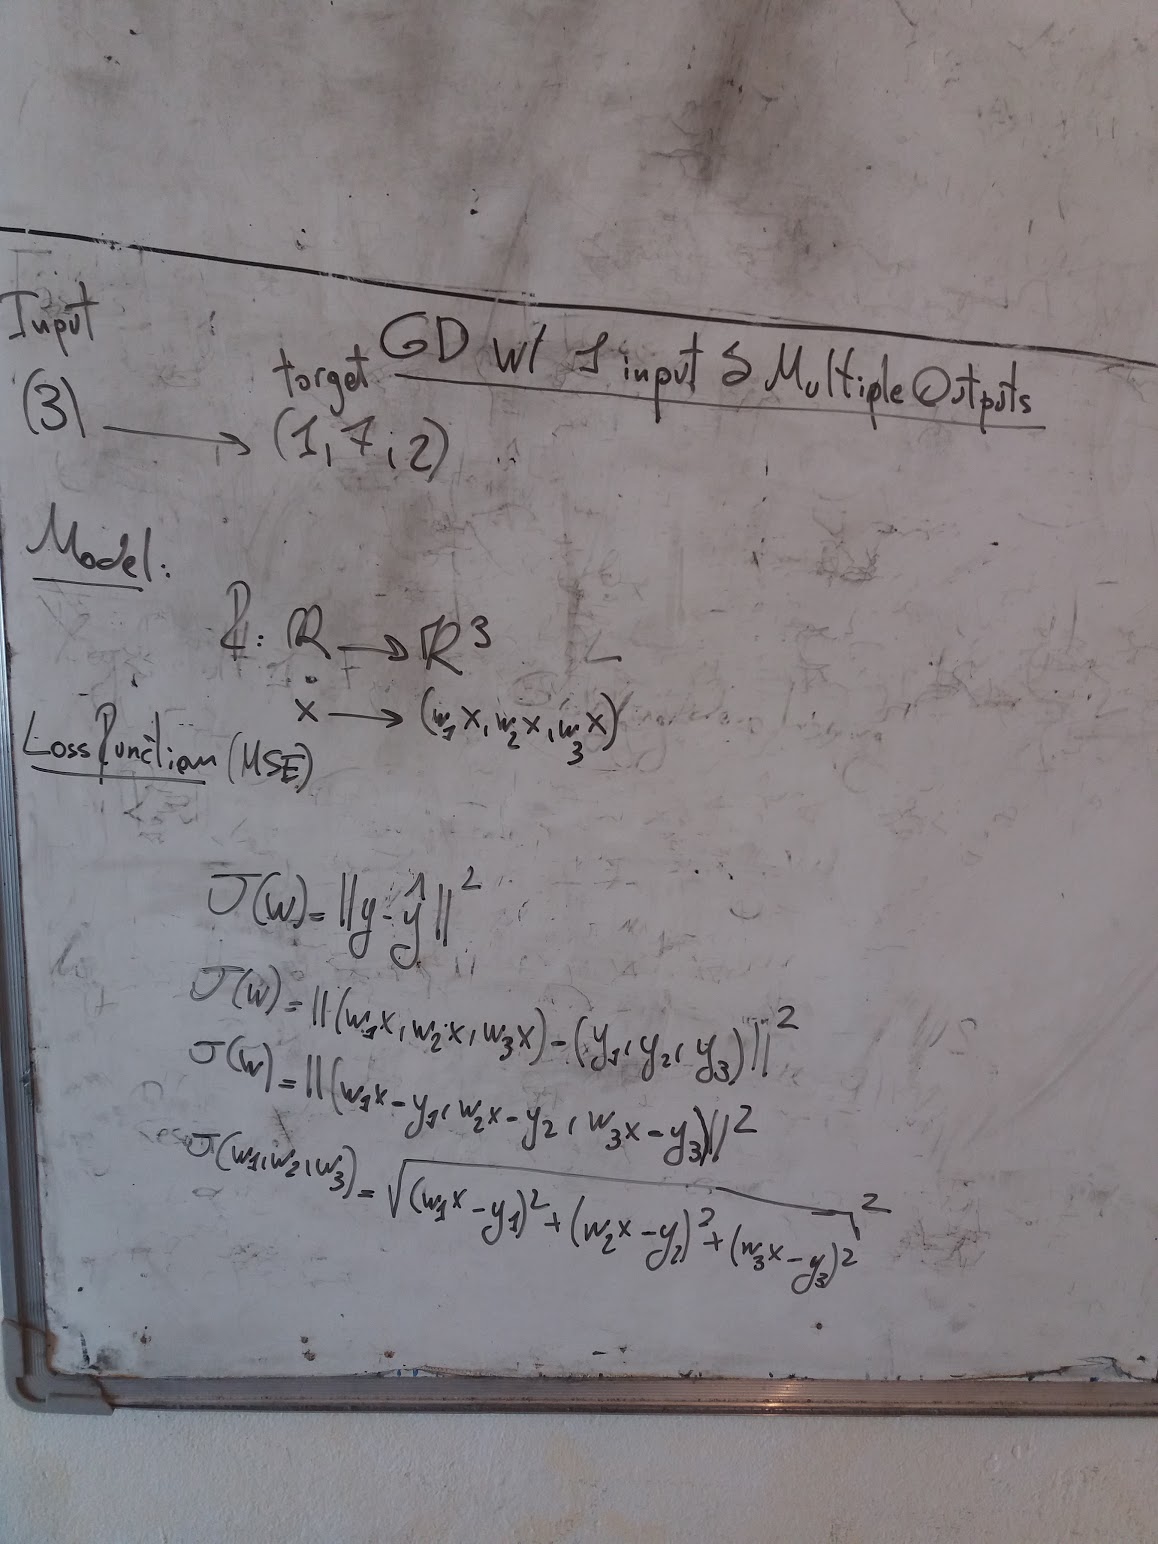 GD w/ 1 input & Multiple Outputs
Input
target
(3) → (1, 7, 2)
Model:
f: ℝ → ℝ³
x → (w₁x, w₂x, w₃x)
Loss Function (MSE)
J(w) = ||y - ŷ||²
J(w) = ||(w₁x, w₂x, w₃x) - (y₁, y₂, y₃)||²
J(w) = ||(w₁x - y₁, w₂x - y₂, w₃x - y₃)||²
J(w₁, w₂, w₃) = √((w₁x - y₁)² + (w₂x - y₂)² + (w₃x - y₃)²)²